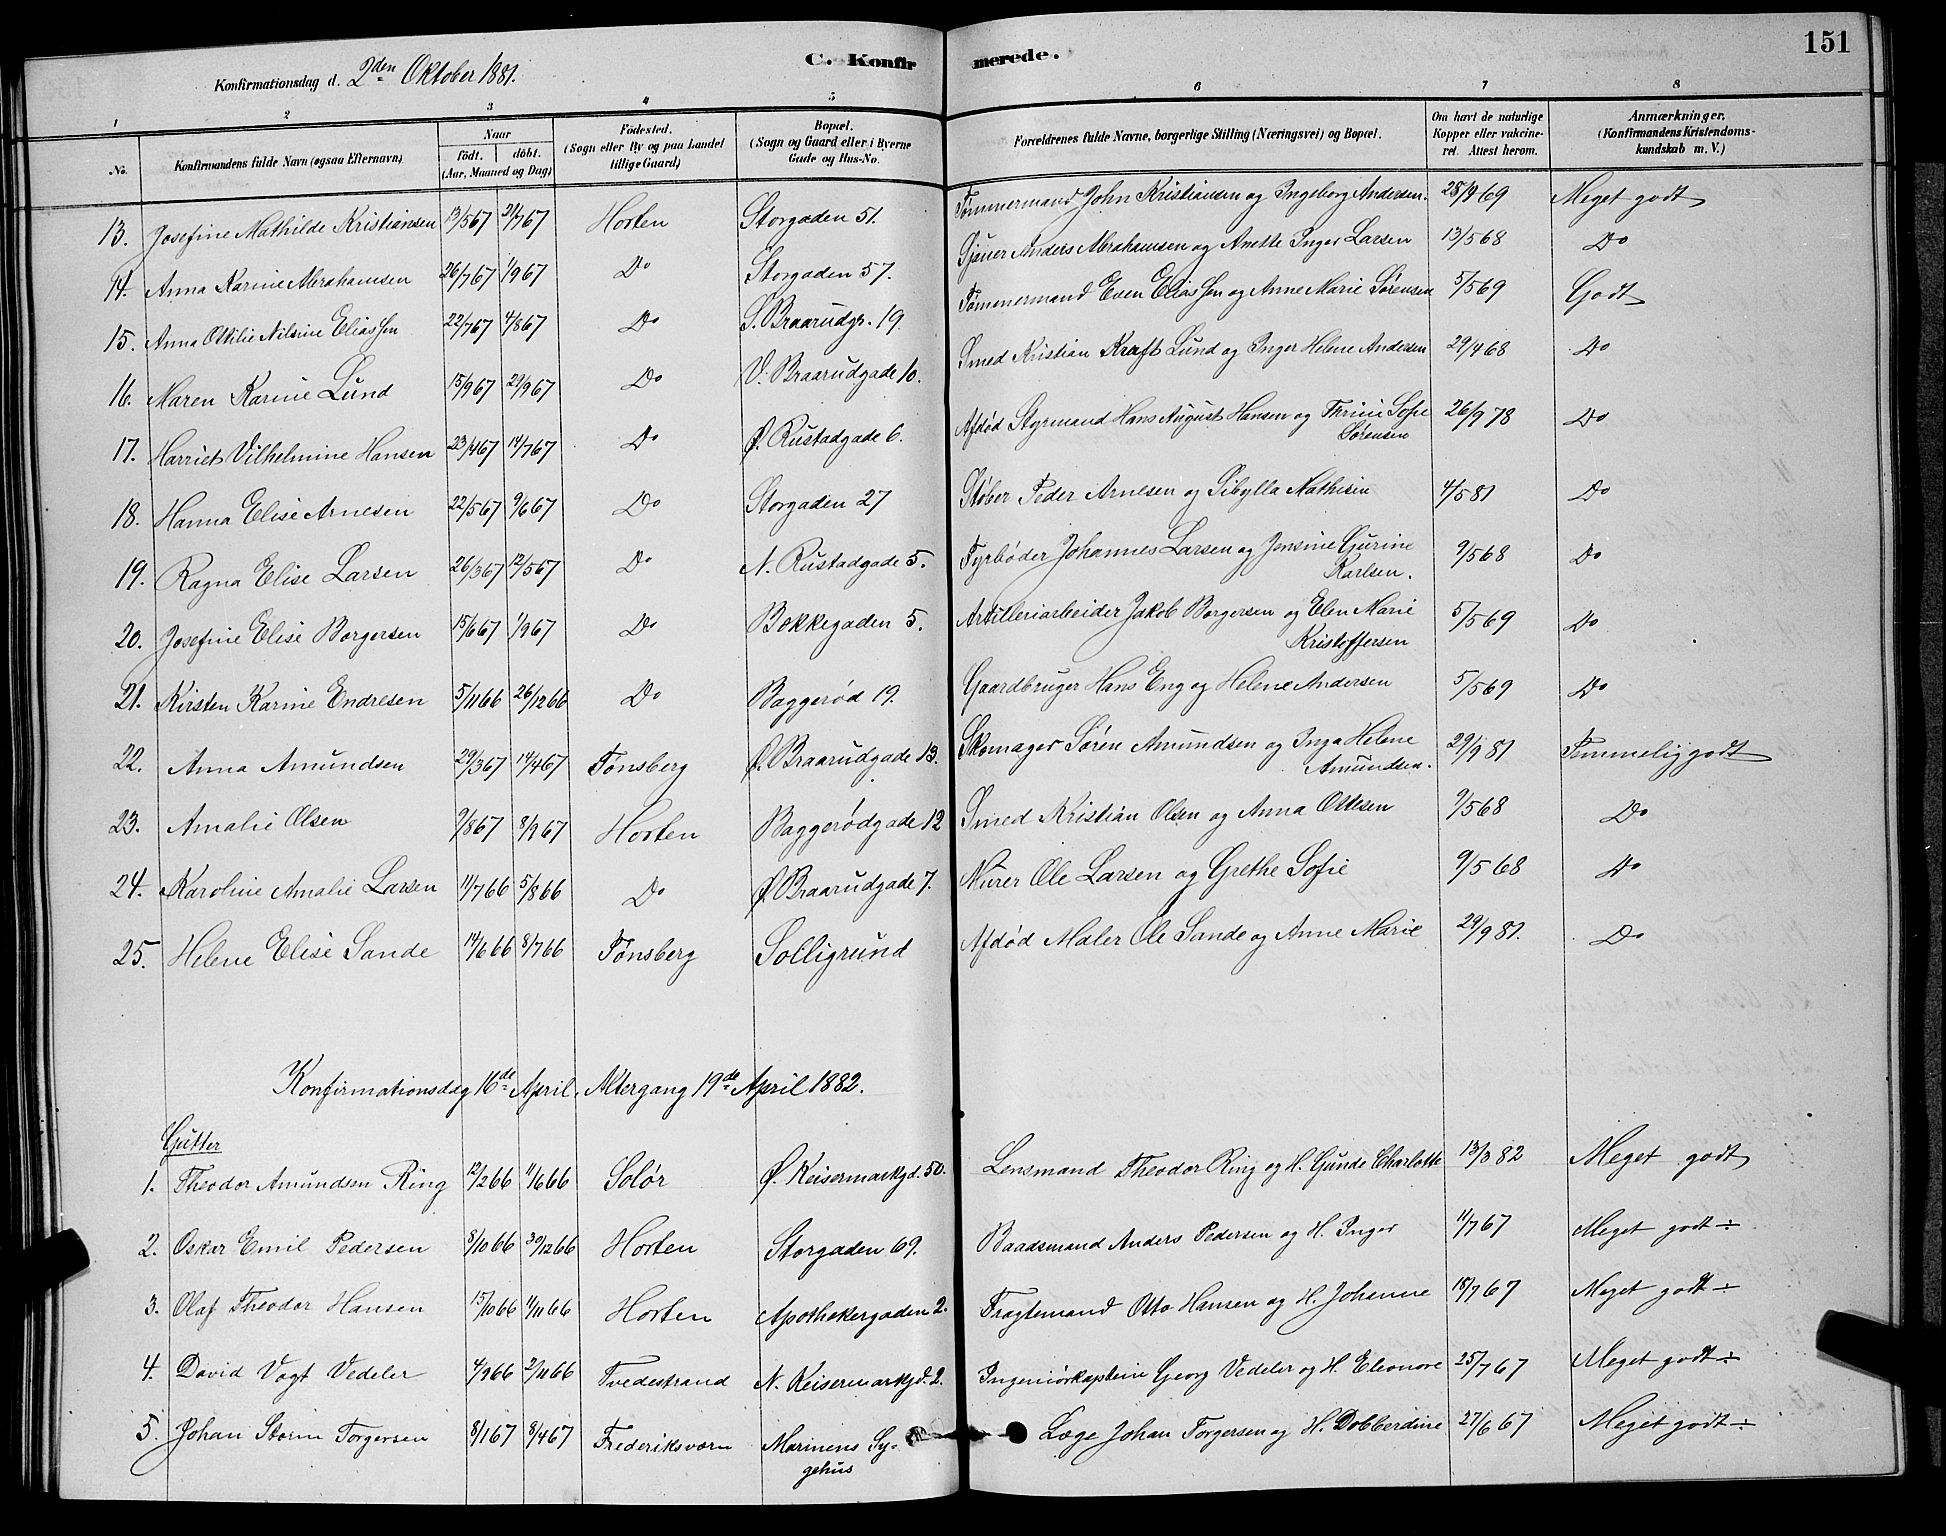 151
C. Konfirmerede.
Konfirmationsdag d. 2den Oktober 1881.
1 2 3 4 5 6 7 8
No. Konfirmandens fulde Navn (ogsaa Efternavn) Naar födt. döbt. (Aar, Maaned og Dag) Födested. (Sogn eller By og paa Landet tillige Gaard) Bopæl. (Sogn og Gaard eller i Byerne Gade og Hus-No. Forældrenes fulde Navne, borgerlige Stilling (Næringsvei) og Bopæl. Om havt de naturlige Kopper eller vakcineret. Attest herom. Anmærkninger. (Konfirmandens Kristendomskundskab m. V.)
13. Josefine Mathilde Kristiansen 13/5 67 21/7 67 Horten Storgaden 51. Tømmermand John Kristiansen og Ingeborg Andersen. 28/4 69 Meget godt
14. Anna Karine Abrahamsen 26/7 67 1/9 67 Do Storgaden 57. Anders Abrahamsen og Anette Inger Larsen 13/5 68 Do
15. Anna Ottilie Nilsine Eliassen 22/7 67 4/8 67 Do S. Braarudg. 19. Tømmermand Even Eliassen og Anne Marie Sørensen 5/5 69 Godt
16. Maren Karine Lund 15/9 67 29/9 67 Do V. Braarudgade 10. Smed Kristian Kraft Lund og Inger Helene Andersen 29/4 68 Do
17. Harriet Vilhelmine Hansen 23/4 67 14/7 67 Do Ø. Rustadgade 6. Afdød Styrmand Hans August Hansen og Thrine Sofie Sørensen 26/9 78 Do
18. Hanna Elise Arnesen 22/5 67 9/6 67 Do Storgaden 27 Støber Peder Arnesen og Sibylla Mathisen 4/5 81 Do
19. Ragna Elise Larsen 26/3 67 12/5 67 Do N. Rustadgade 5. Fyrbøder Johannes Larsen og Jensine Gurine Karlsen. 9/5 68 Do
20. Josefine Elise Borgersen 15/6 67 1/9 67 Do Bekkegaden 5. Artilleriarbeider Jakob Borgersen og Elen Marie Kristoffersen 5/5 69 Do
21. Kirsten Karine Endresen 5/11 66 26/12 66 Do Baggerød 19. Gaardbruger Hans Eng og Helene Andersen 5/5 69 Do
22. Anna Amundsen 29/3 67 14/4 67 Tønsberg Ø. Braarudgade 13. Skomager Sören Amundsen og Inga Helene Amundsen. 29/9 81 Temmelig godt
23. Amalie Olsen 9/8 67 8/9 67 Horten Baggerødgade 12 Smed Kristian Olsen og Anna Ottesen 9/5 68 Do
24. Karoline Amalie Larsen 11/7 66 5/8 66 Do Ø. Braarudgade 7. Murer Ole Larsen og Grethe Sofie 9/5 68 Do
25. Helene Elise Sande 14/6 66 8/7 66 Tønsberg Solligrund Afdød Maler Ole Sande og Anne Marie 29/9 81. Do
Konfirmationsdag 16de April, Altergang 19de April 1882.
Gutter
1. Theodor Amundsen Ring 12/2 66 11/6 66 Solør Ø. Keisermarkgd. 50. Lensmand Theodor Ring og H. Gunde Charlotte 13/3 82 Meget godt
2. Oskar Emil Pedersen 8/10 66 30/12 66 Horten Storgaden 69. Baadsmand Anders Pedersen og H. Inger 11/7 67 Meget godt ÷
3. Olaf Theodor Hansen 15/10 66 11/11 66 Horten Apothekergaden 2. Fragtemand Otto Hansen og H. Johanne 18/7 67 Meget godt ÷
4. David Vogt Vedeler 4/9 66 2/11 66 Tvedestrand N. Keisermarkgd. 2. Ingeniörkaptein Georg Vedeler og H. Eleonore 25/7 67 Meget godt ÷
5. Johan Storm Torgersen 8/1 67 8/4 67 Frederiksværn Marinens Sygehus Læge Johan Torgersen og H. Dobberdine 27/6 67 Meget godt ÷